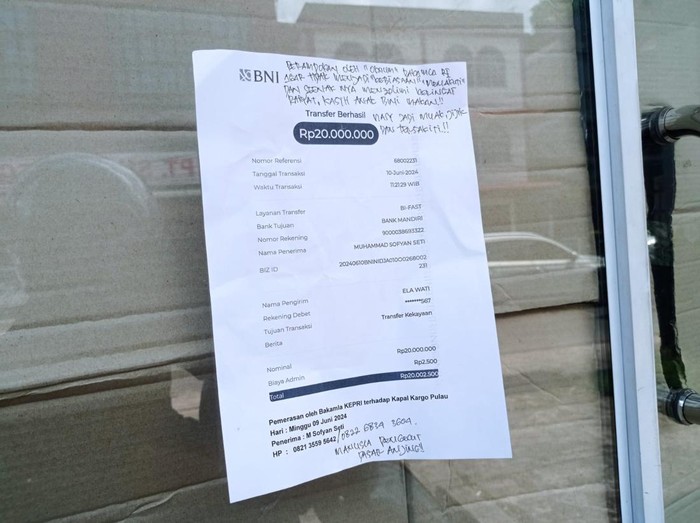 BNI
PERAMPOKAN OLEH "OKNUM"
AGAR TIDAK MENJADI KEBIASAAN
DAN SEENAK NYA MENZOLIMI KERINGAT
RAKYAT, KASIH ANAK BINI MAKAN!!
Transfer Berhasil
Rp20.000.000
DAN TERSAKITI!!
Nomor Referensi 68002231
Tanggal Transaksi 10-Juni-2024
Waktu Transaksi 11:21:29 WIB
Layanan Transfer BI-FAST
Bank Tujuan BANK MANDIRI
Nomor Rekening 9000038693322
Nama Penerima MUHAMMAD SOFYAN SETI
BIZ ID
231
Nama Pengirim ELA WATI
Rekening Debet *******567
Tujuan Transaksi Transfer Kekayaan
Berita
Nominal Rp20.000.000
Biaya Admin Rp2.500
Total Rp20.002.500
Pemerasan oleh Bakamla KEPRI terhadap Kapal Kargo Pulau
Hari : Minggu 09 Juni 2024
Penerima : M Sofyan Seti
HP : 0821 3559 5642/0822 6834 3604.
MANUSIA PENGECUT
DASAR ANJING!!